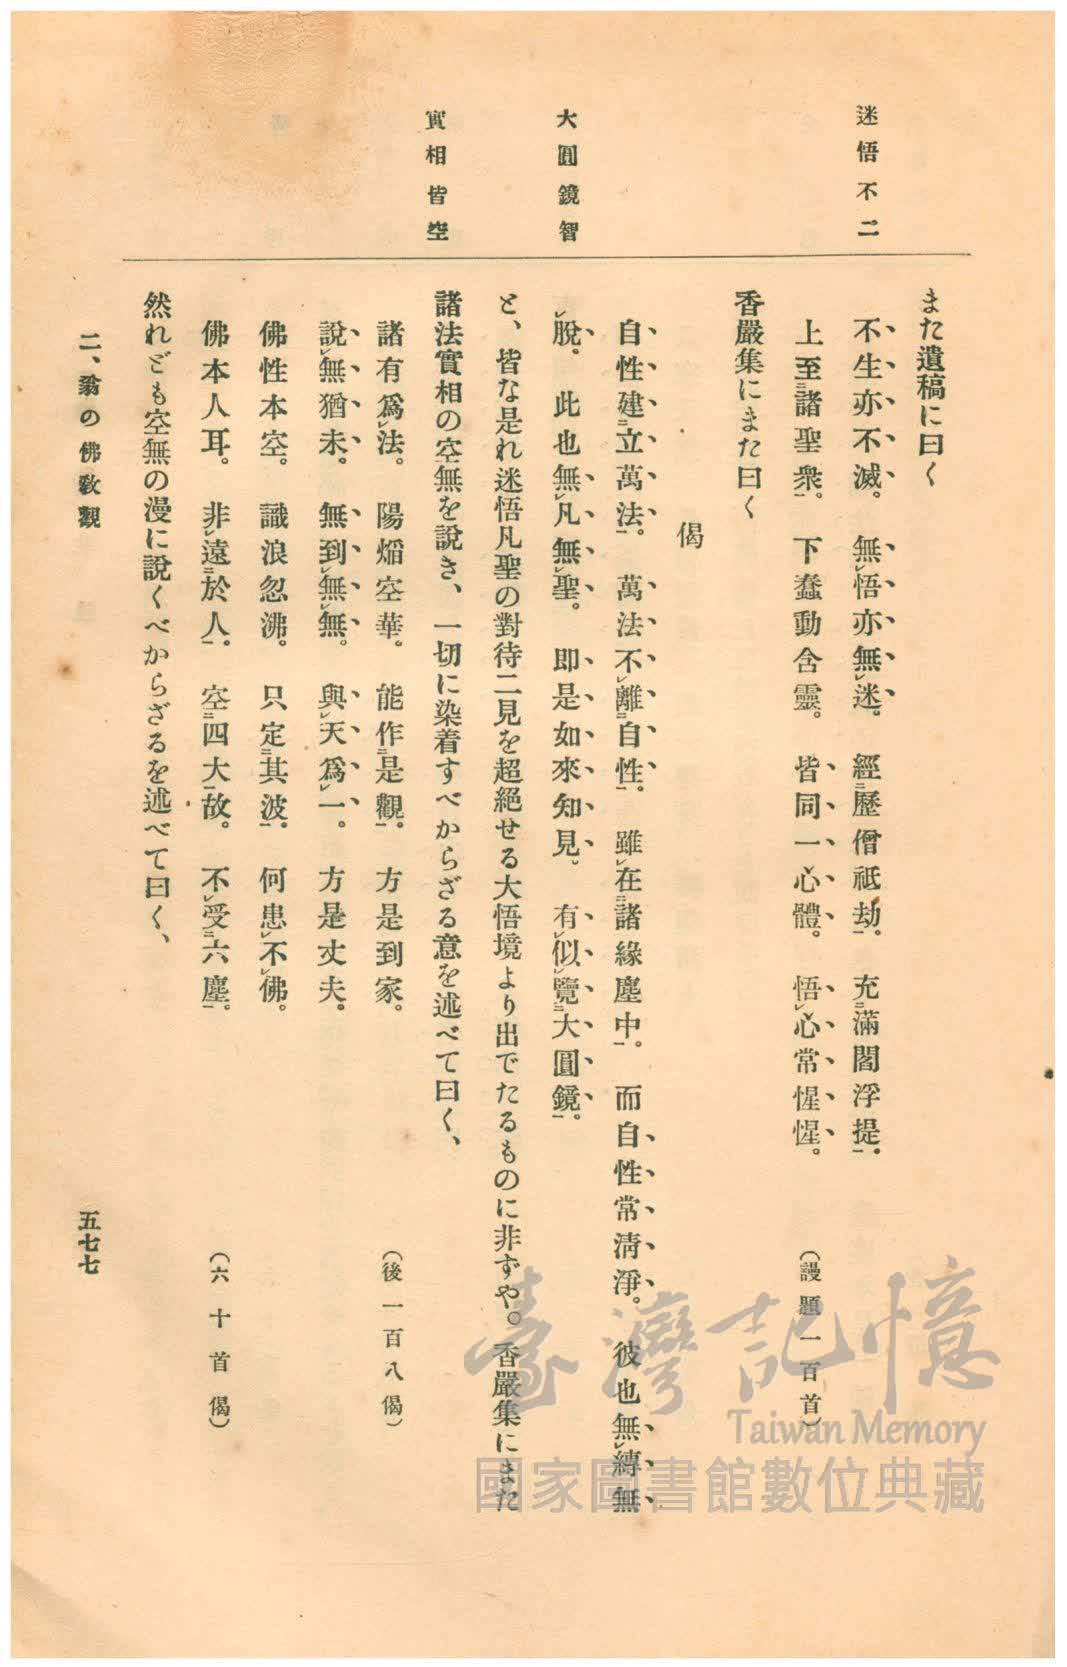 迷悟不二
大圓鏡智
實相皆空
また遺稿に曰く
不生亦不滅。無㆑悟亦無㆑迷。經㆓歷僧祇劫㆒。充㆓滿閻浮提㆒。
上至㆓諸聖衆㆒。下蠢動含靈。皆同一心體。悟㆑心常惺惺。（謾題一百首）
香嚴集にまた曰く
偈
自性建㆓立萬法㆒。萬法不㆑離㆓自性㆒。雖㆑在㆓諸緣塵中㆒。而自性常淸淨。彼也無㆑縛無
㆑脫。此也無㆑凡無㆑聖。即是如來知見。有㆑似㆑覽㆓大圓鏡㆒。
と、皆な是れ迷悟凡聖の對待二見を超絕せる大悟境より出でたるものに非ずや。香嚴集にまた
諸法實相の空無を說き、一切に染着すべからざる意を述べて曰く、
諸有爲㆑法。陽焔空華。能作㆓是觀㆒。方是到家。（後一百八偈）
說㆑無猶未。無㆑到㆑無無。與㆑天爲㆑一。方是丈夫。
佛性本空。識浪忽沸。只定㆓其波㆒。何患㆑不㆑佛。
佛本人耳。非㆑遠㆓於人㆒。空㆓四大㆒故。不㆑受㆓六塵㆒。（六十首偈）
然れども空無の漫に說くべからざるを述べて曰く、
二、翁の佛敎觀
五七七
臺灣記憶
Taiwan Memory
國家圖書館數位典藏